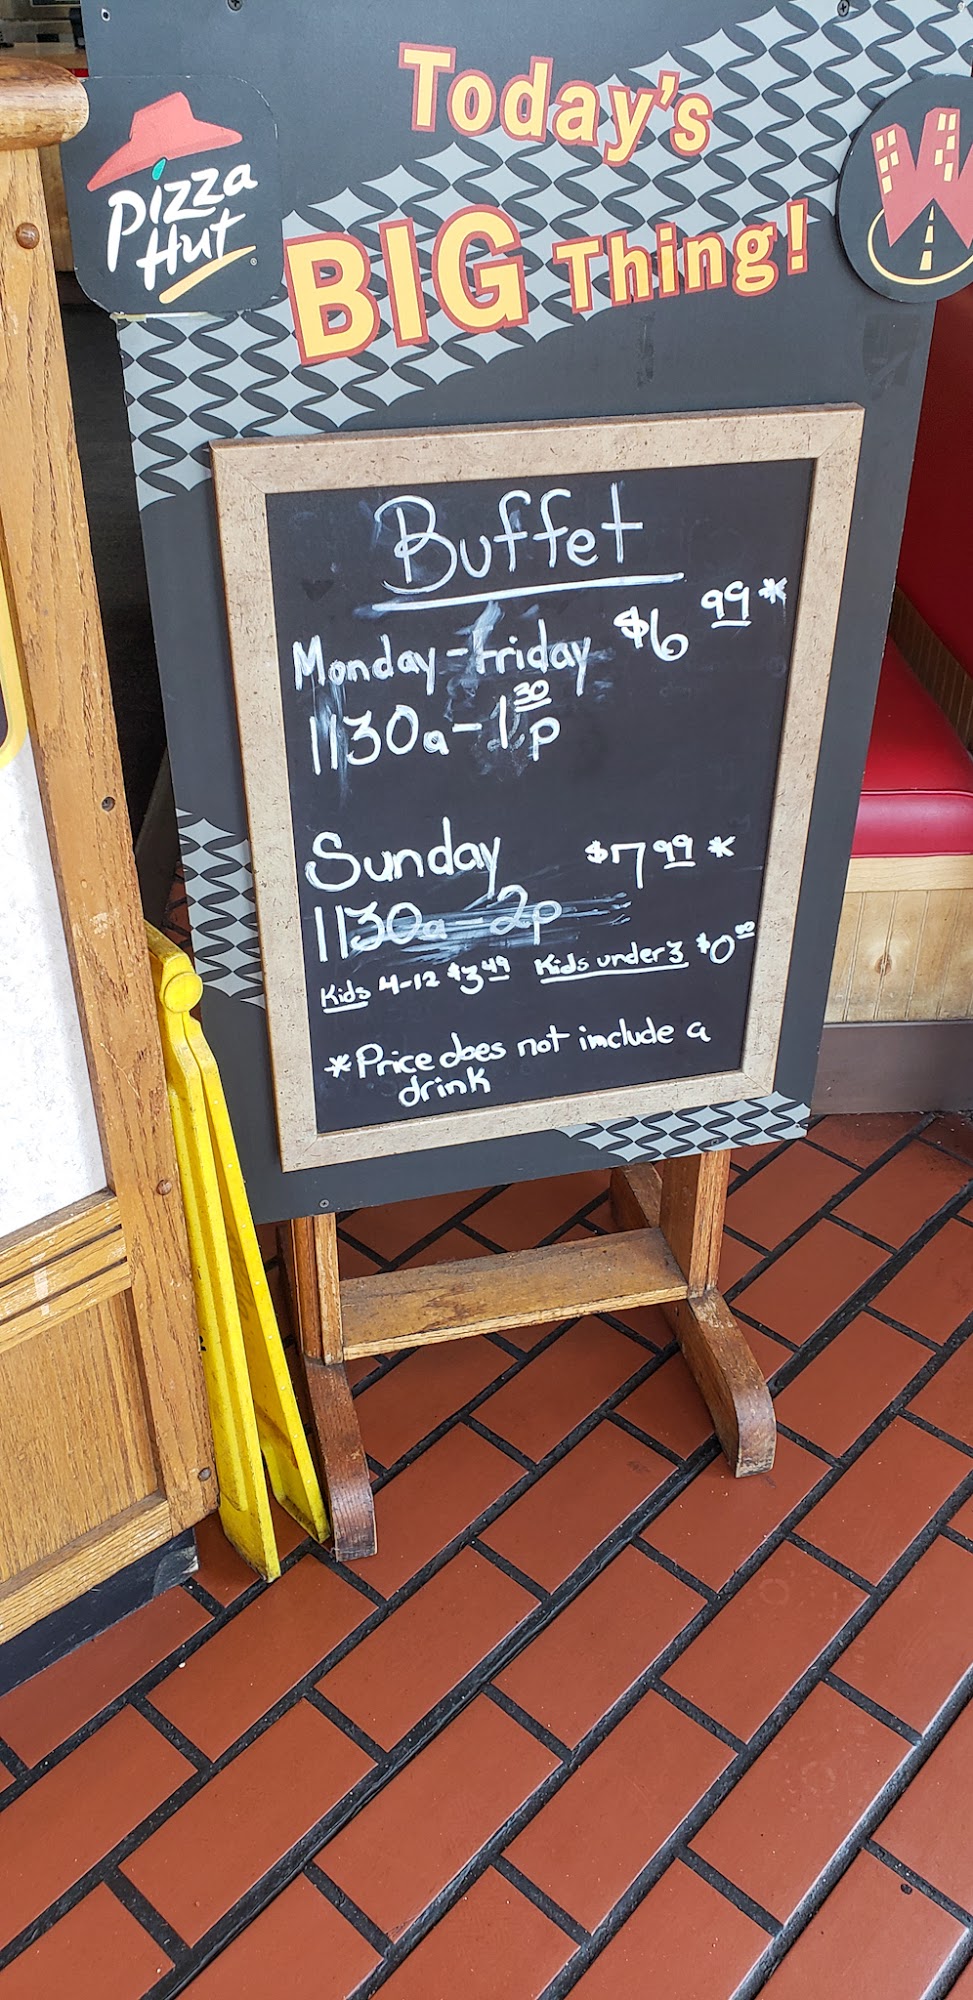 Today's
Pizza
Hut
BIG Thing!
W
Buffet
Monday-Friday $6 99*
1130a-1 30 p
Sunday $7 99 *
1130a-2p
Kids 4-12 $3 49 Kids under 3 $0 00
*Price does not include a
drink